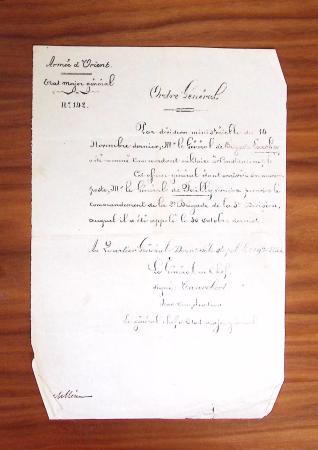 Armée d'Orient.
Etat major général
N° 192.
Ordre Général
Par décision ministérielle du 14
Novembre dernier, Mr le Général de Brigade
a été nommé Commandant militaire à Constantinople
Cet officier général étant arrivé à son nouveau
poste, Mr le Général de Failly prendra le
commandement de la 2e Brigade de la 3e Division,
auquel il a été appelé le 30 Octobre dernier.
Au Quartier Général
Le Général en Chef
signé Canrobert
Pour
Le général chef d'Etat major général